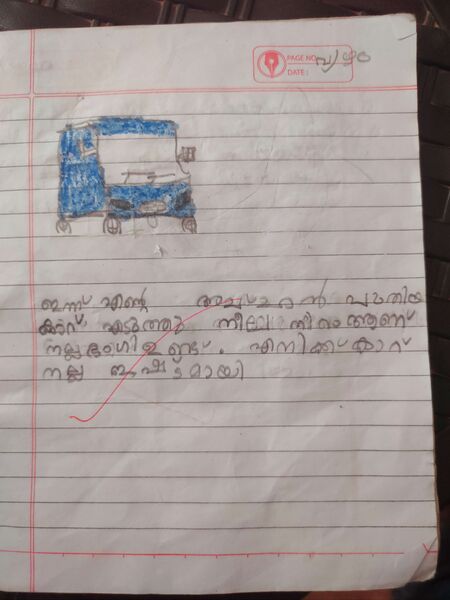 PAGE NO.
DATE:
ഇന്ന് എന്റെ പുതിയ
കാറ് എടുത്തു നീല നിറം ആണ്
നല്ല ഭംഗി ഉണ്ട്. എനിക്ക് കാറ്
നല്ല ഇഷ്ടമായി